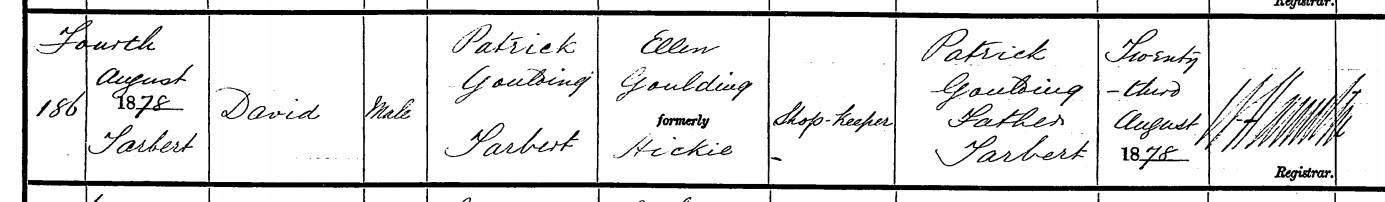 Registrar.
Fourth
August
1878
Tarbert
186
David
Male
Patrick
Goulding
Tarbert
Ellen
Goulding
formerly
Hickie
Shop-keeper
Patrick
Goulding
Father
Tarbert
Twenty
-third
August
1878
Registrar.